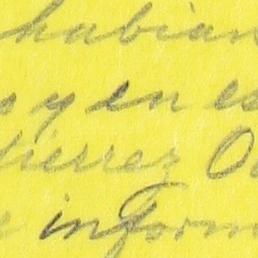 habian
y en es
tierrez O
inform